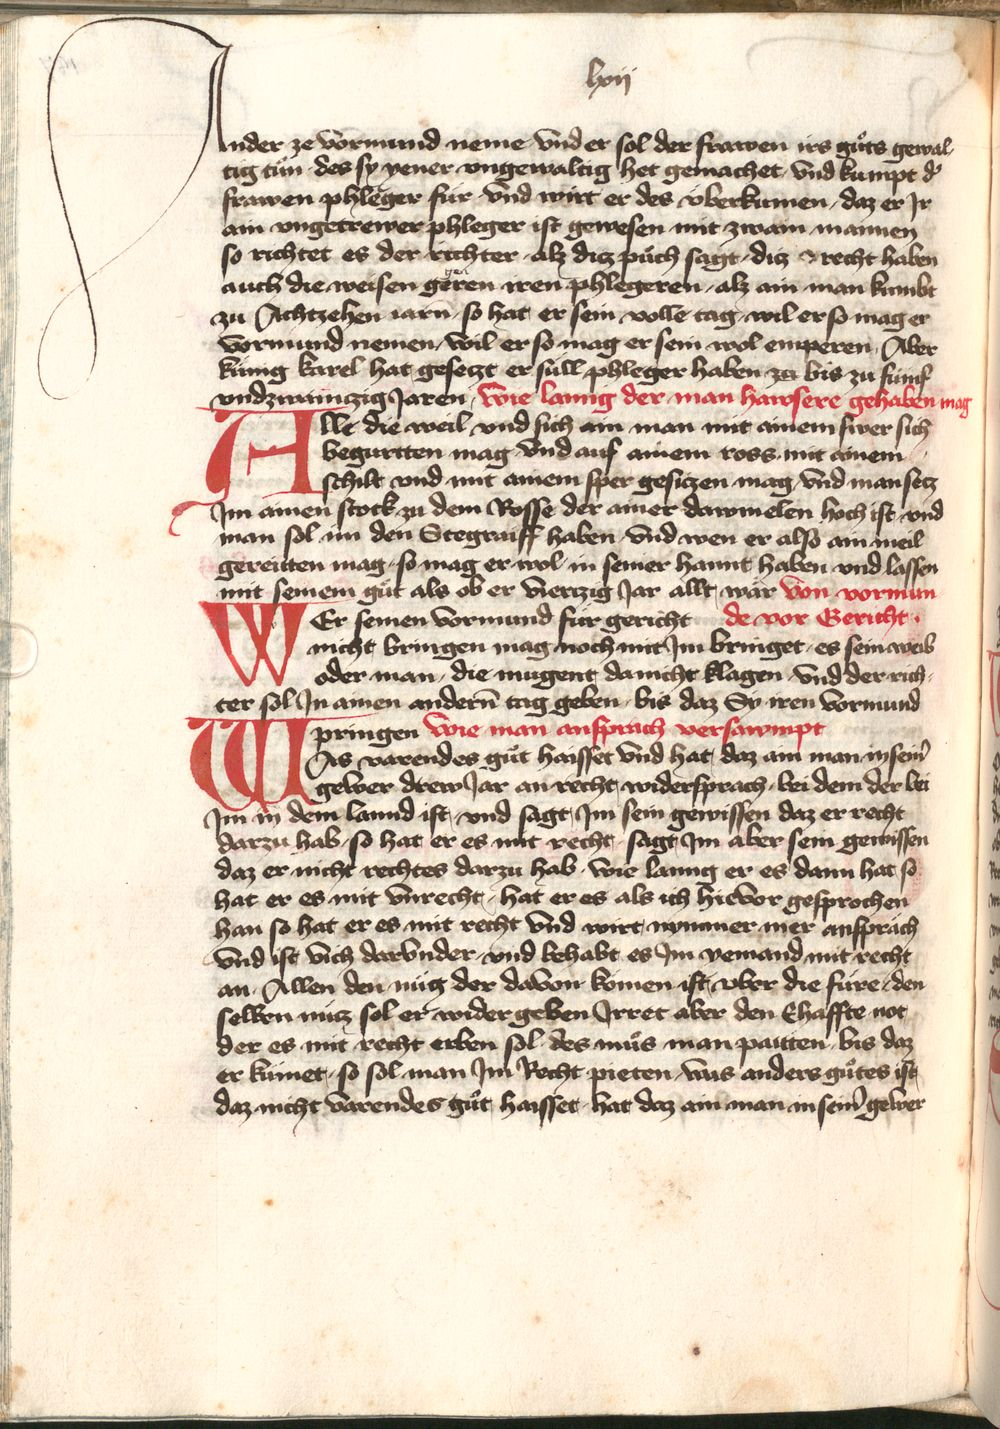 lxii
Ander ze vormund neme vnd er sol der frawen irs gůts gewal-
tig tůn des sy yener vngewaltig het gemachet vnd kumpt dˀ
frawen phleger fur vnd wirt er des vberkumen daz er Ir
ain vngetrewer phleger ist gewesen mit zwain mannen
so richtet es der richter alz ditz půch sagt ditz recht haben
auch die weisen geren iren phlegeren alz ain man kumbt
zu Achtzehen iarn so hat er sein volle tag wil er so mag er
vormund nemen wil er so mag er sein wol emperen Aber
kunig karel hat gesetzt er sull phleger haben bis zu funf
vndzwaintzig Jaren wie lanng der man hawsere gehaben mag
Alle die weil vnd sich ain man mit ainem swer sich
begurtten mag vnd auf ainem ross mit ainem
schilt vnd mit ainem sper gesitzen mag vnd man setz
Im ainen stock zu dem Rosse der ainer dawmelen hoch ist vnd
man sol im den Stegraiff haben vnd wen er also ain meil
gereitten mag so mag er wol in seiner hannt haben vnd lassen
mit seinem gůt als ob er viertzig Jar allt wär von vormun
WEr seinen vormund fur gericht de vor Gericht
nicht bringen mag noch mit Im bringet es sein weib
oder man die mugent da nicht klagen vnd der rich-
ter sol In ainen andern̄ tag geben bis daz Sy iren vormund
pringen wie man ansprach versawmpt
WAs varendes gůt haisset vnd hat daz ain man in sein̄
gewer drew Jar an recht widersprach bei dem der bei
Im in dem lannd ist vnd sagt Im sein gewissen daz er recht
darzu hab so hat er es mit recht sagt Im aber sein gewissen
daz er nicht rechtes darzu hab wie lanng er es dann hat so
hat er es mit vnrecht hat er es als ich hievor gesprochen
han so hat er es mit recht vnd wirt nymmer mer ansprach
vnd ist vich darvnder vnd behabt es Im yemand mit recht
an Allen den nutz der davon komen ist vber die fure den
selben nutz sol er wider geben Irret aber den Ehaffte not
der es mit recht erben sol des můs man paitten bis daz
er kumet so sol man Im Recht pieten was anders gůtes ist
daz nicht varendes gůt haisset hat daz ain man in sein̄ gewer